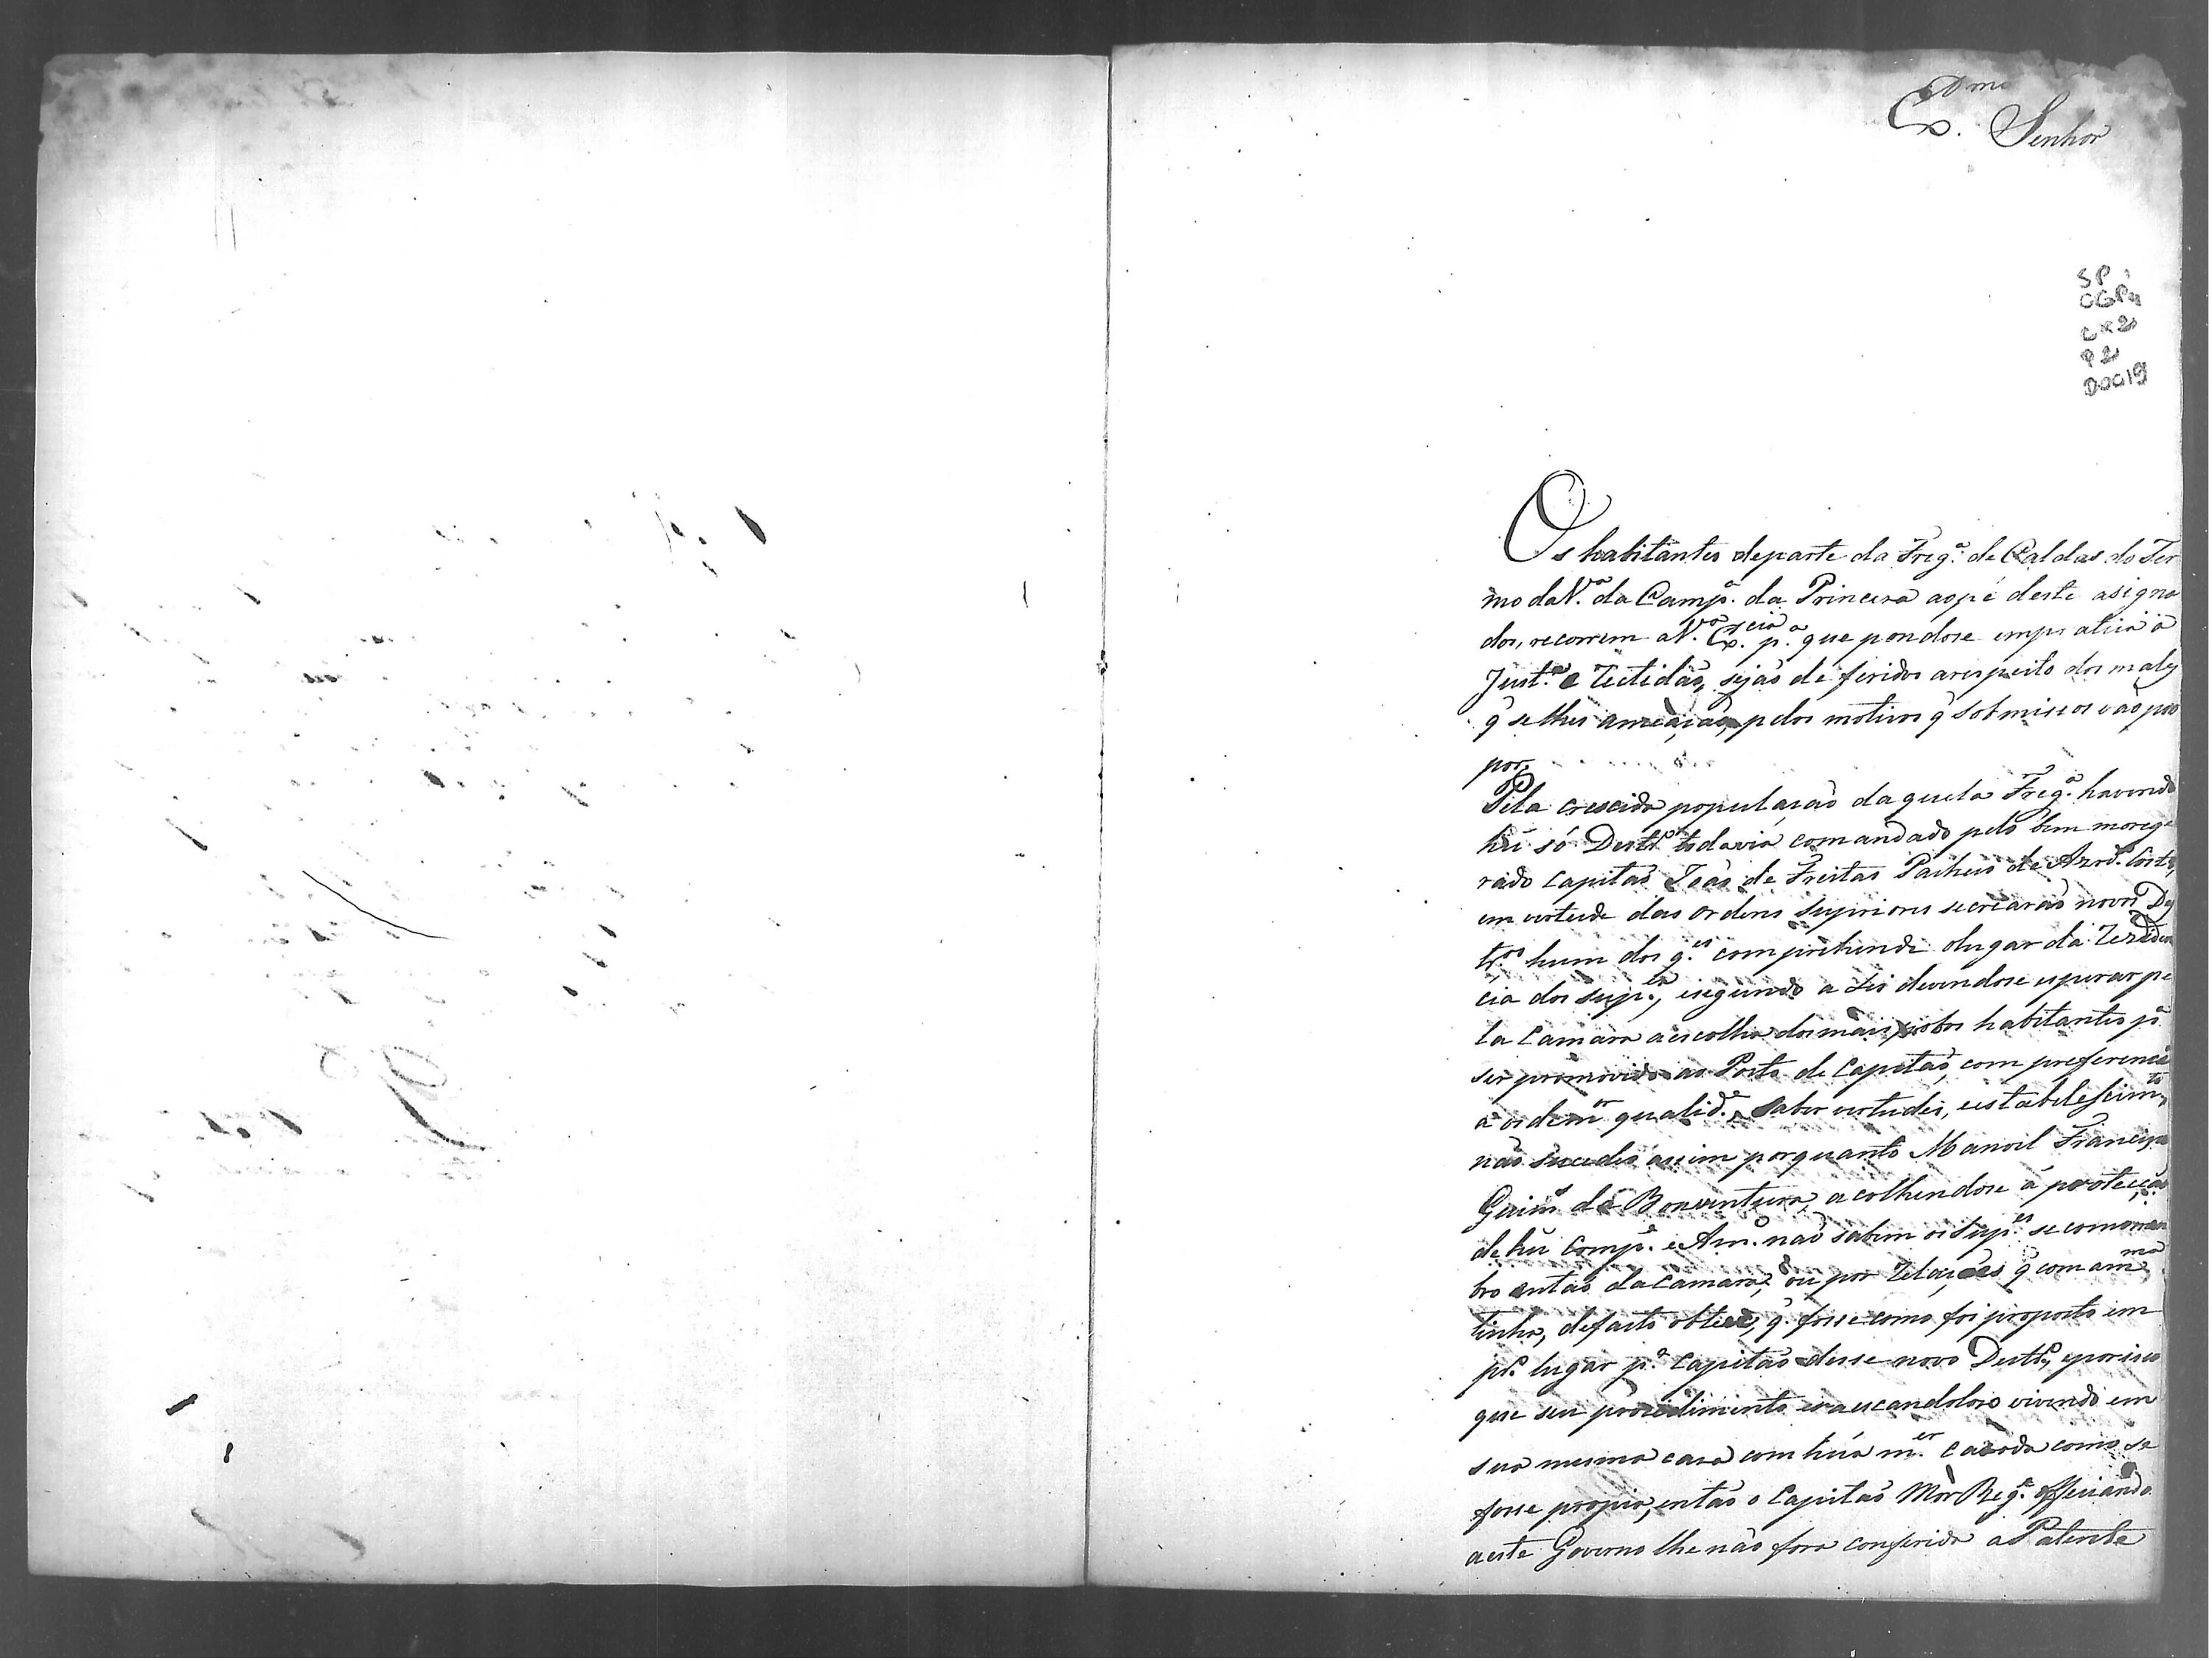 Ex.mo Senhor
SP
CGP4
CX2
P2
DOC19
Os habitantes departe da Freg.ª de Caldas do Ter
mo daV.ª da Camp.ª da Princesa aopé deste asigna
dos, recorrem aV.ª Ex.cia p.ª que pondose empratica a
Just.ª e Rectidaõ, sejaõ deferidos arespeito dos males
q̃ selhes ameaçaõ, pelos motivos q̃ sobmissos vaõ pro
por.
Pela crescida populaçaõ daquela Freg.ª havendo
hũ só Destr.º todavia comandado pelo bem morige
rado Capitaõ Joaõ de Freitas Pacheco de Azd.º
em vertude das ordens Superiores secrearaõ novos Des
tr.os hum dos q.es comprehende olugar da Reziden
cia dos Sup.es, esegundo a Lei devendose esperar pe
la Camara aescolha dos mais habitantes p.ª
ser promovido ao Posto de Capitaõ, com preferencia
a ordem qualid.e, saber vertudes, eestabelescim.to,
naõ sucedeo assim porquanto Manoel Francisco
de Boaventura, acolhendose á protecçaõ
de hũ Comp.e e Am.º naõ sabem os Sup.es se comomem
bro entaõ daCamara, ou por Relaçoẽs q̃ comam.ma
tinha, defacto obteve, q̃ fosse como foi proposto em
pr.º lugar p.ª Capitaõ desse novo Destr.º, eporisso
que seu procedimento eraescandoloso vivendo em
sua mesma casa com hũa m.er casada como se
fosse propia, entaõ o Capitaõ Mór Reg.e officiando
aeste Governo lhe naõ fora conferida a Patente